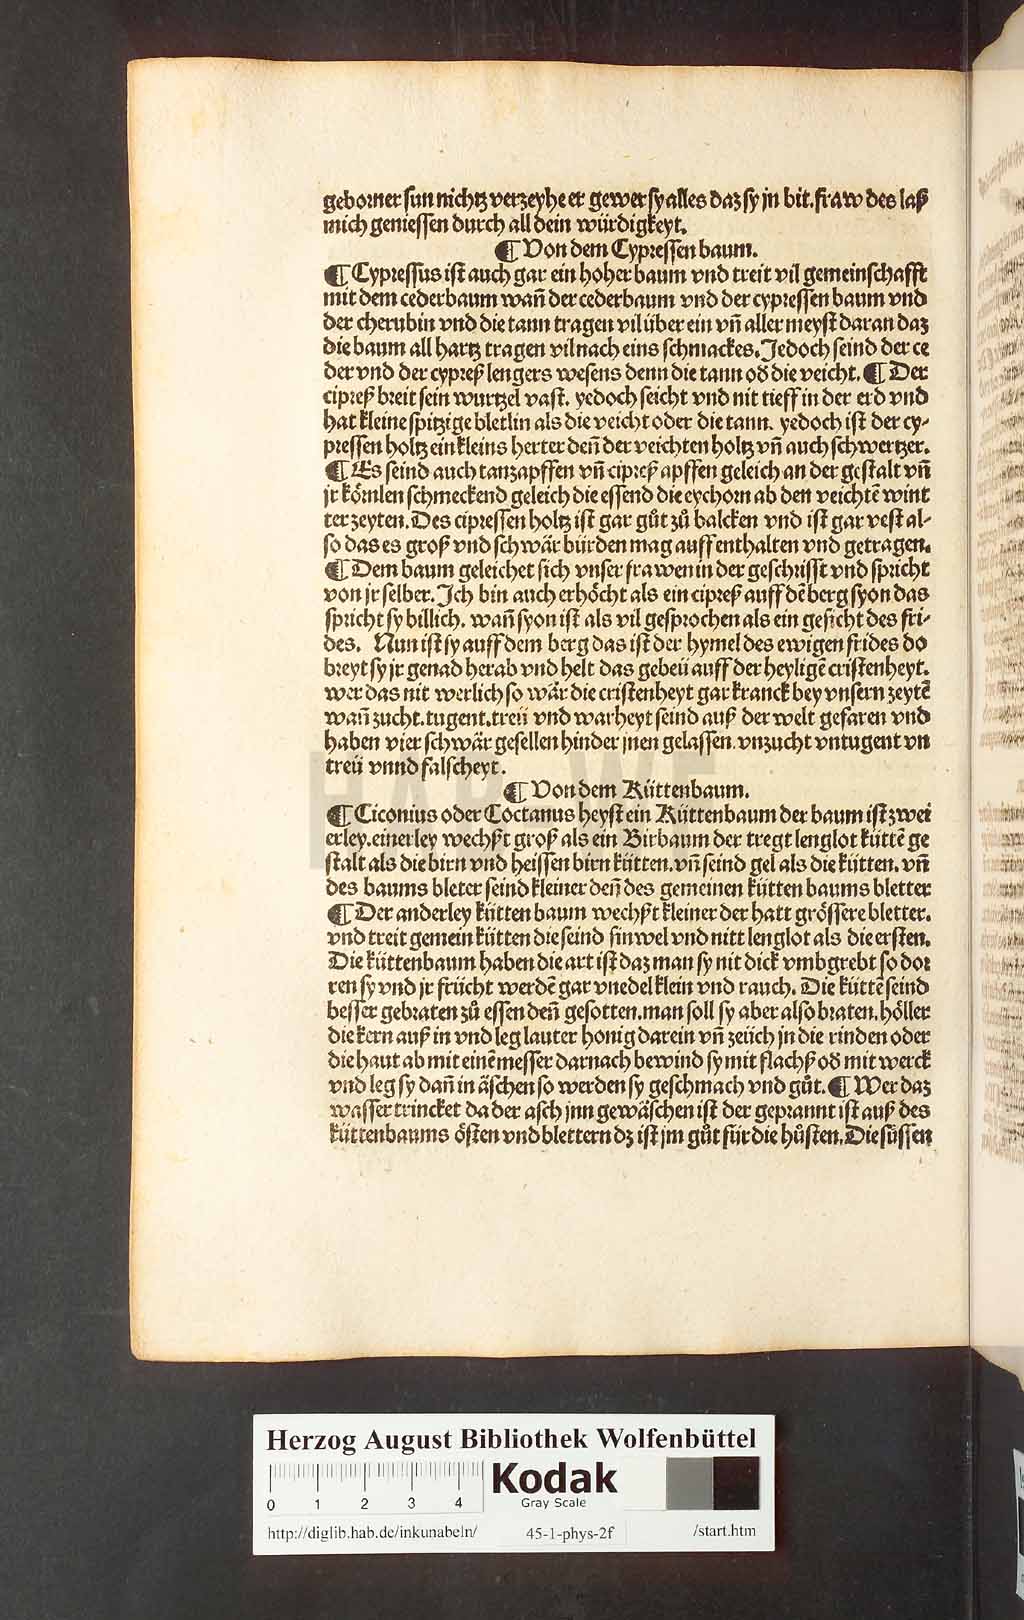 geborner sun nichtz verzeyhe er gewer sy alles daz sy jn bit. fraw des laß
mich geniessen durch all dein würdigkeyt.
¶ Von dem Cypressen baum.
¶ Cypressus ist auch gar ein hoher baum vnd treit vil gemeinschafft
mit dem cederbaum wañ der cederbaum vnd der cypressen baum vnd
der cherubin vnd die tann tragen vil über ein vñ aller meyst daran daz
die baum all hartz tragen vil nach eins schmackes. Jedoch seind der ce
der vnd der cypreß lengers wesens denn die tann oð die veicht. ¶ Der
cipreß breit sein wurtzel vast. yedoch seicht vnd nit tieff in der erd vnd
hat kleine spitzige bletlin als die veicht oder die tann. yedoch ist der cy-
pressen holtz ein kleins herter deñ der veichten holtz vñ auch schwertzer.
¶ Es seind auch tanzapffen vñ cipreß apffen geleich an der gestalt vñ
jr körnlen schmeckend geleich die essend die eychorn ab den veichtē wint
ter zeyten. Des cipressen holtz ist gar gůt zů balcken vnd ist gar vest al-
so das es groß vnd schwär bürden mag auff enthalten vnd getragen.
¶ Dem baum geleichet sich vnser frawen in der geschrifft vnd spricht
von jr selber. Ich bin auch erhöcht als ein cipreß auff dē berg syon das
spricht sy billich. wañ syon ist als vil gesprochen als ein gesicht des fri-
des. Nun ist sy auff dem berg das ist der hymel des ewigen frides do
breyt sy jr genad herab vnd helt das gebeü auff der heyligē cristenheyt.
wer das nit werlich so wär die cristenheyt gar kranck bey vnsern zeytē
wañ zucht. tugent. treü vnd warheyt seind auß der welt gefaren vnd
haben vier schwär gesellen hinder jnen gelassen. vnzucht vntugent vn
treü vnnd falscheyt.
¶ Von dem Küttenbaum.
¶ Ciconius oder Coctanus heyst ein Küttenbaum der baum ist zwei
erley. einerley wechßt groß als ein Birbaum der tregt lenglot küttē ge
stalt als die birn vnd heissen birn kütten. vñ seind gel als die kütten. vñ
des baums bleter seind kleiner deñ des gemeinen kütten baums bletter
¶ Der anderley kütten baum wechßt kleiner der hatt grössere bletter.
vnd treit gemein kütten die seind sinwel vnd nitt lenglot als die ersten.
Die küttenbaum haben die art ist daz man sy nit dick vmbgrebt so dor
ren sy vnd jr frücht werdē gar vnedel klein vnd rauch. Die küttē seind
besser gebraten zů essen deñ gesotten. man soll sy aber also braten. höller
die kern auß in vnd leg lauter honig darein vñ zeüch jn die rinden oder
die haut ab mit einē messer darnach bewind sy mit flachß oð mit werck
vnd leg sy dañ in äschen so werden sy geschmach vnd gůt. ¶ Wer daz
wasser trincket da der asch jnn gewäschen ist der geprannt ist auß des
küttenbaums östen vnd blettern dz ist jm gůt für die hůsten. Die süssen
HAB WF
Herzog August Bibliothek Wolfenbüttel
0 1 2 3 4
Kodak
Gray Scale
http://diglib.hab.de/inkunabeln/ 45-1-phys-2f /start.htm